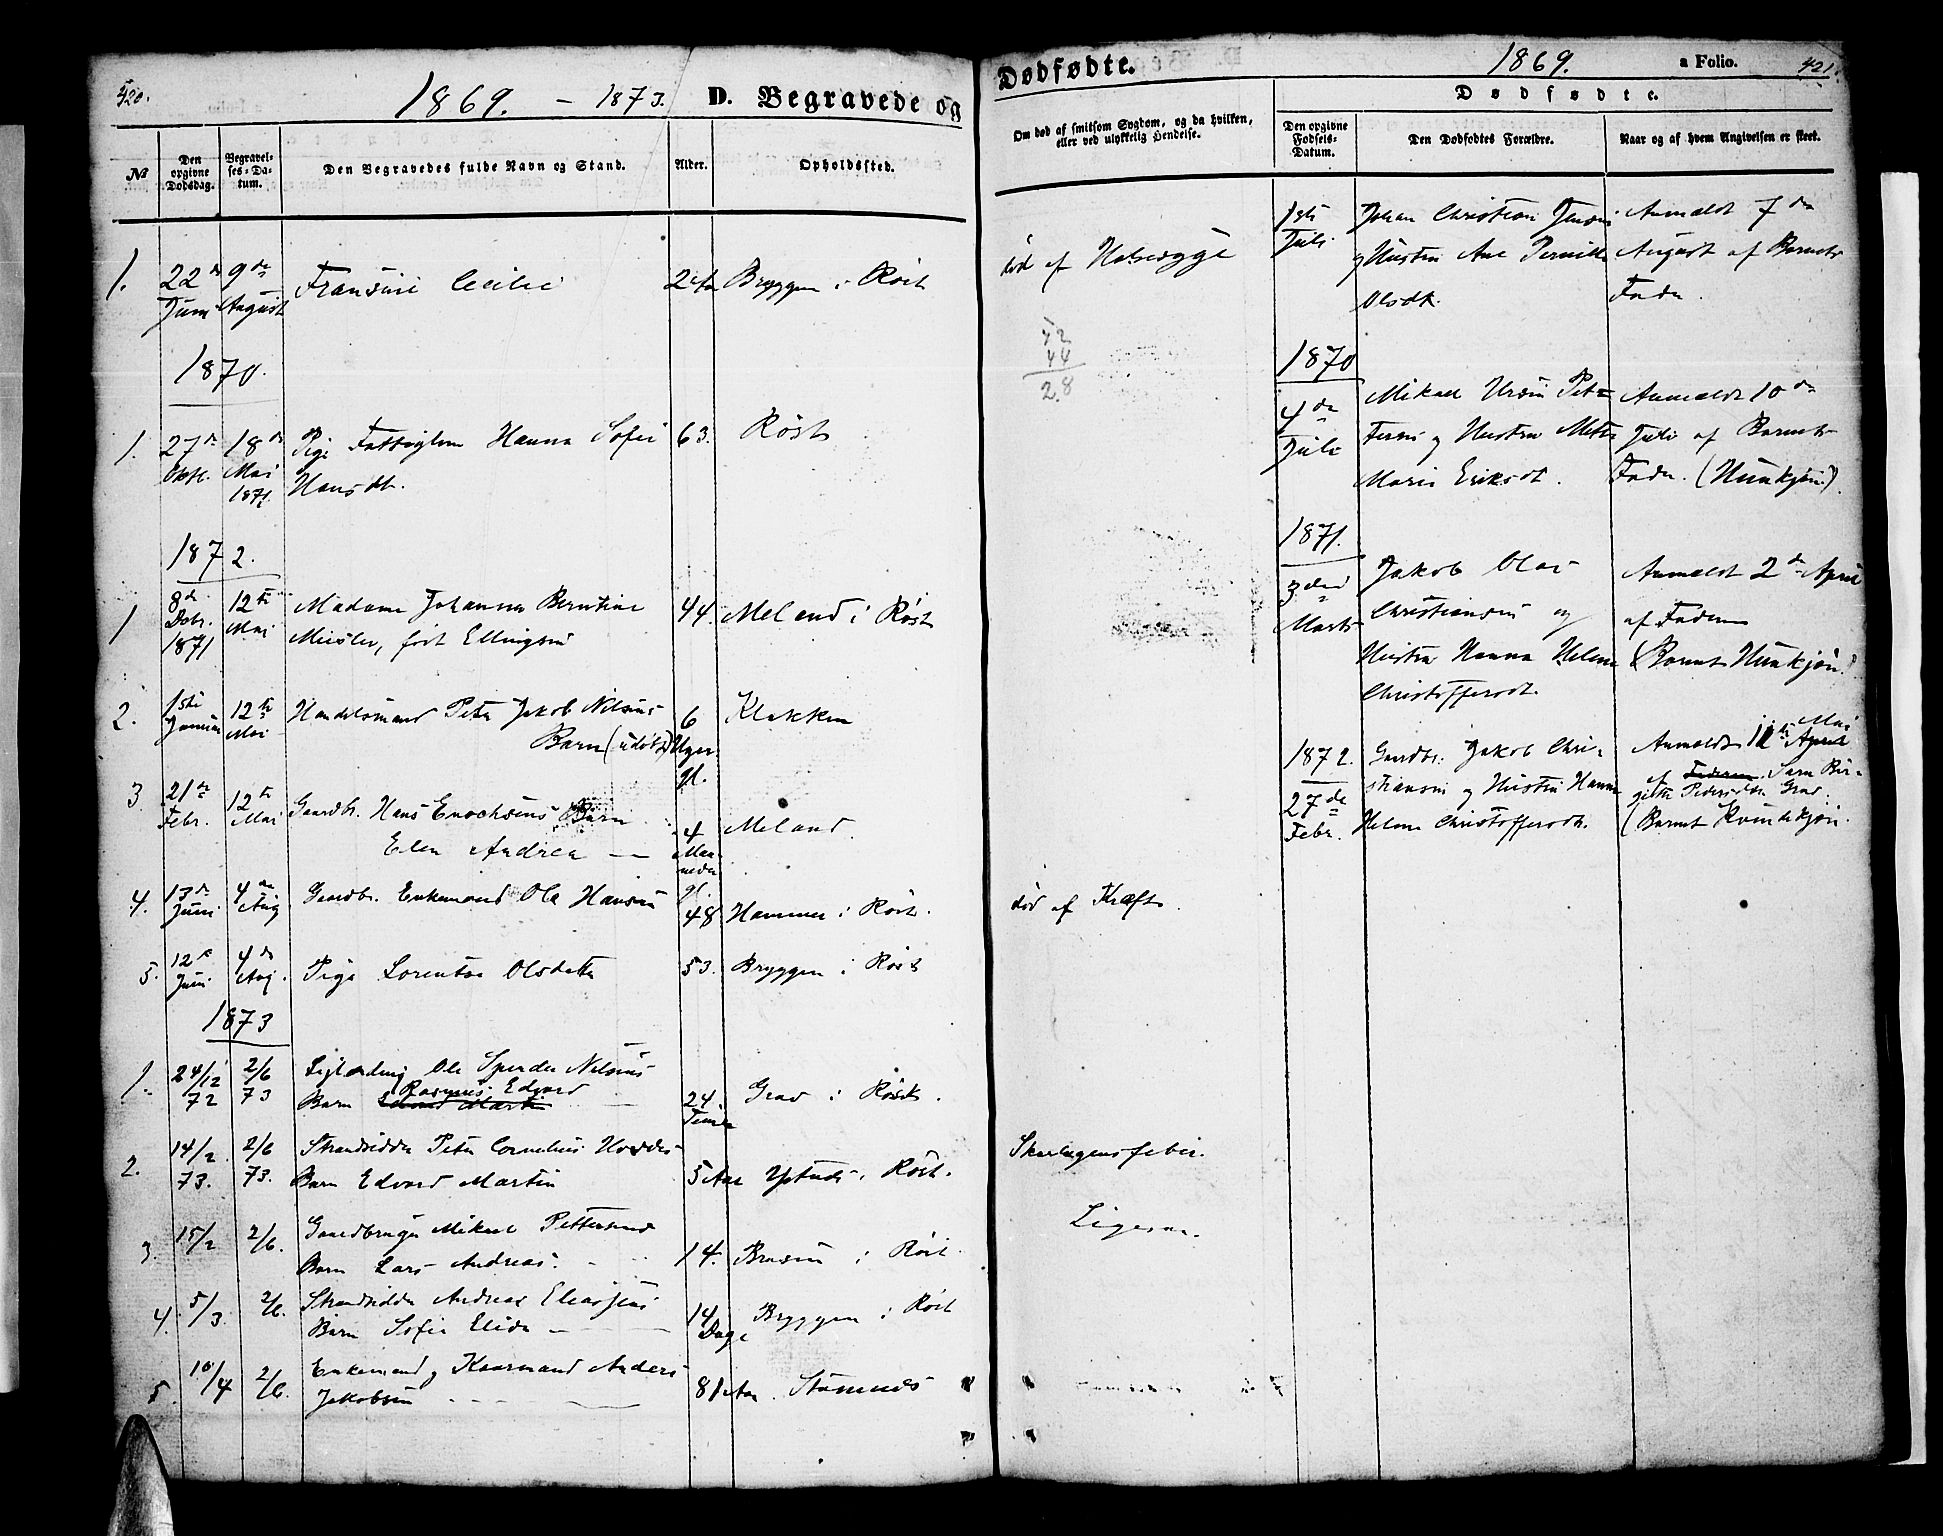 420.
1869. – 1873. D. Begravede og
№
Den opgivne Dødsdag.
Begravelses-Datum.
Den Begravedes fulde Navn og Stand.
Alder.
Opholdssted.
1. 22de Juni 9de August Fransine Cecilie 2 Aar Bryggen i Röst
1870.
1. 27de Oktbr. 18de Mai 1871. Pige Fattiglem Hanna Sofie 63. Röst
Hansdtr.
1872.
1 8de Dcbr. 1871 12te Mai Madame Johanna Berntine 44. Meland i Röst
født Ellingsen
2. 1ste Januar 12te Mai Handelsmand Peter Jakob Nilsens 6 Uger gl. Klakken
Barn (udöbt)
3. 21de Febr. 12te Mai Gaardbr. Hans Enochsens Barn 4 Maaneder gl. Meland.
Elen Andrea —
4. 13de Juni 4de Aug Gaardbr. Enkemand Ole Hansen 48 Hammer i Röst.
5. 12te Juni 4de Aug. Pige Lorentse Olsdatter 53. Bryggen i Röst
1873
1. 24/12 72 2/6 73 Ole Nilsens
Rasmus Edvard
Barn 24 Timer Grav i Röst.
2. 14/2 73. 2/6 73. Strandsidder Peter Cornelius
Barn Edvard Martin 5 Aar Ystnes i Röst.
3. 15/2 2/6. Gaardbruger Mikael Pettersens
Barn Lars Andreas. 14. i Röst.
4. 5/3. 2/6. Strandsidder Andreas Eliassens
Barn Sofie Elida — 14 Dage Bryggen i Röst
5. 10/4 2/6. Enkemand og Kaarmand Anders
Jakobsen 81 Aar. Stavnæs
Dødfødte. 1869. a Folio. 421.
Om død af smitsom Sygdom, og da hvilken,
eller ved ulykkelig Hendelse.
Dødfødte.
Den opgivne Fødsels-Datum.
Den Dødfødtes Forældre.
Naar og af hvem Angivelsen er skeet.
død af Halssyge
1ste Juli. Johan Christian Jensen Anmeldt 7de
og Hustru Ane Pernille August af Barnets
Olsdtr. Fader.
42
44
28
1870
4de Juli Mikael Ursin Peter- Anmeldt 10de
sens og Hustru Mette Juli af Barnets
Marie Eriksdtr. Fader. (Hunkjön).
1871.
3die Marts Jakob Olai Anmeldt 2de April
Christiansen og af Faderen
Hustru Hanna Helene (Barnet Hunkjön)
Christoffersdtr.
1872. 27de Febr. Gaardbr. Jakob Chri- Anmeldt 12te Mai April
stiansen og Hustru Hanna af Faderen. Sara Bir-
gitte Pedersdtr. Grav.
Helene Christoffersdtr. (Barnet Kvindekjön.
død af Kræft.
Skarlagensfeber.
Ligesaa.